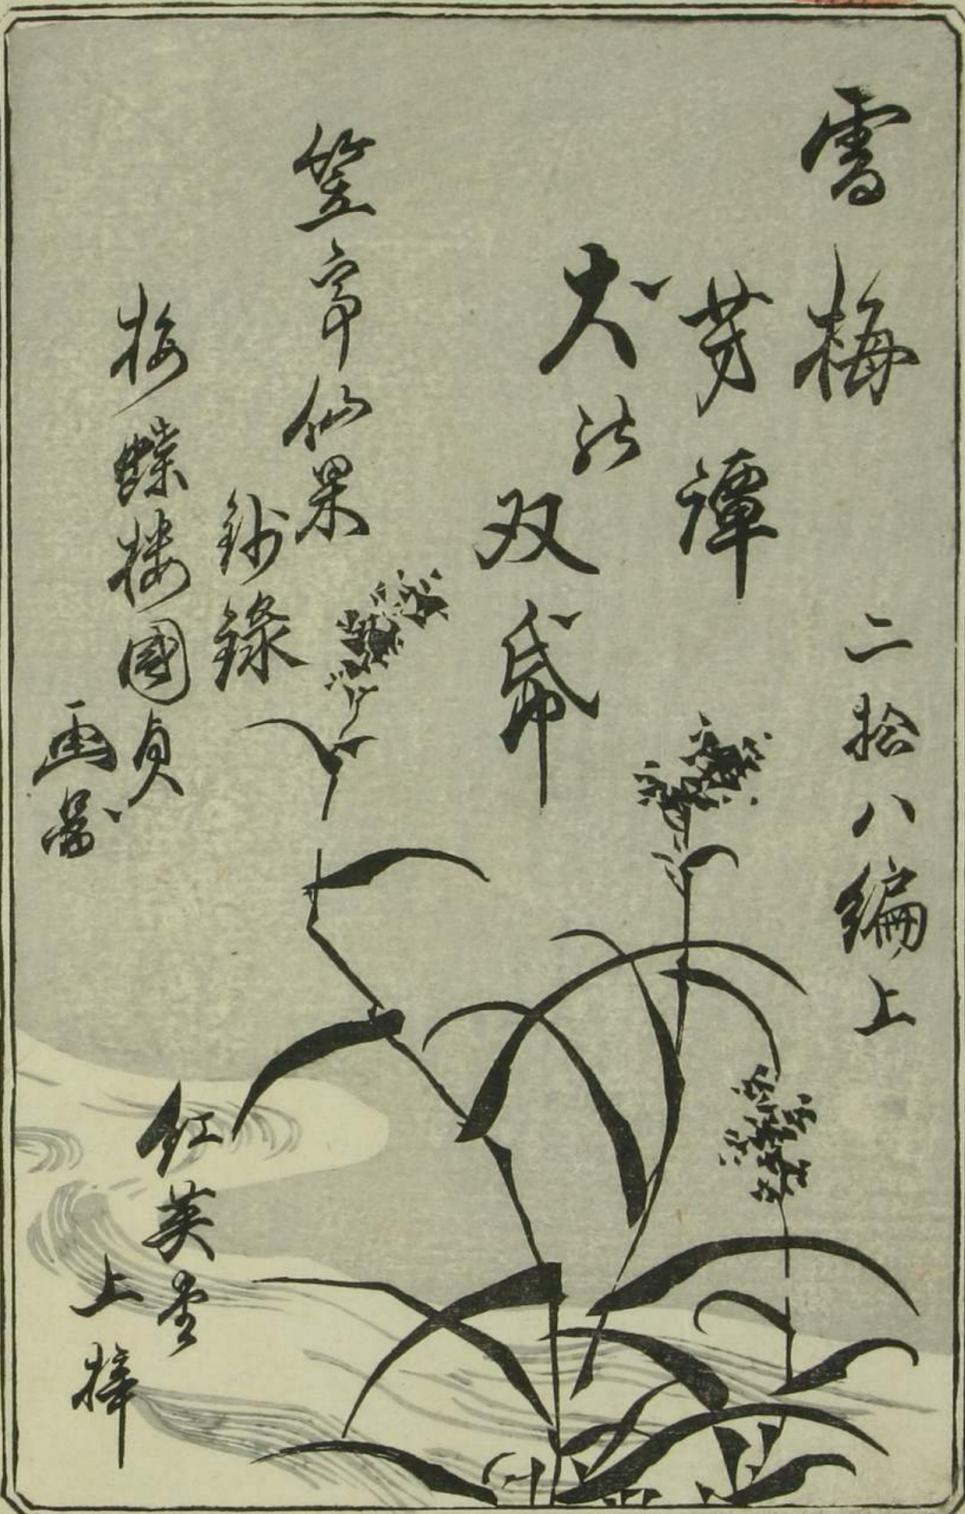 雪梅
芳譚
犬の
双帋
二拾八編上
笠亭仙果
鈔錄
梅蝶楼國貞
画圖
紅英堂
上梓